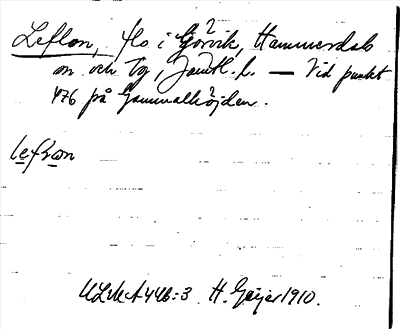 Leflon, flo i Görvik, Hammerdals
sn och tg, Jämtl. l. — Vid punkt
476 på Gammalhöjden.
lefron
ULMA 446:3 H. Geijer 1910.